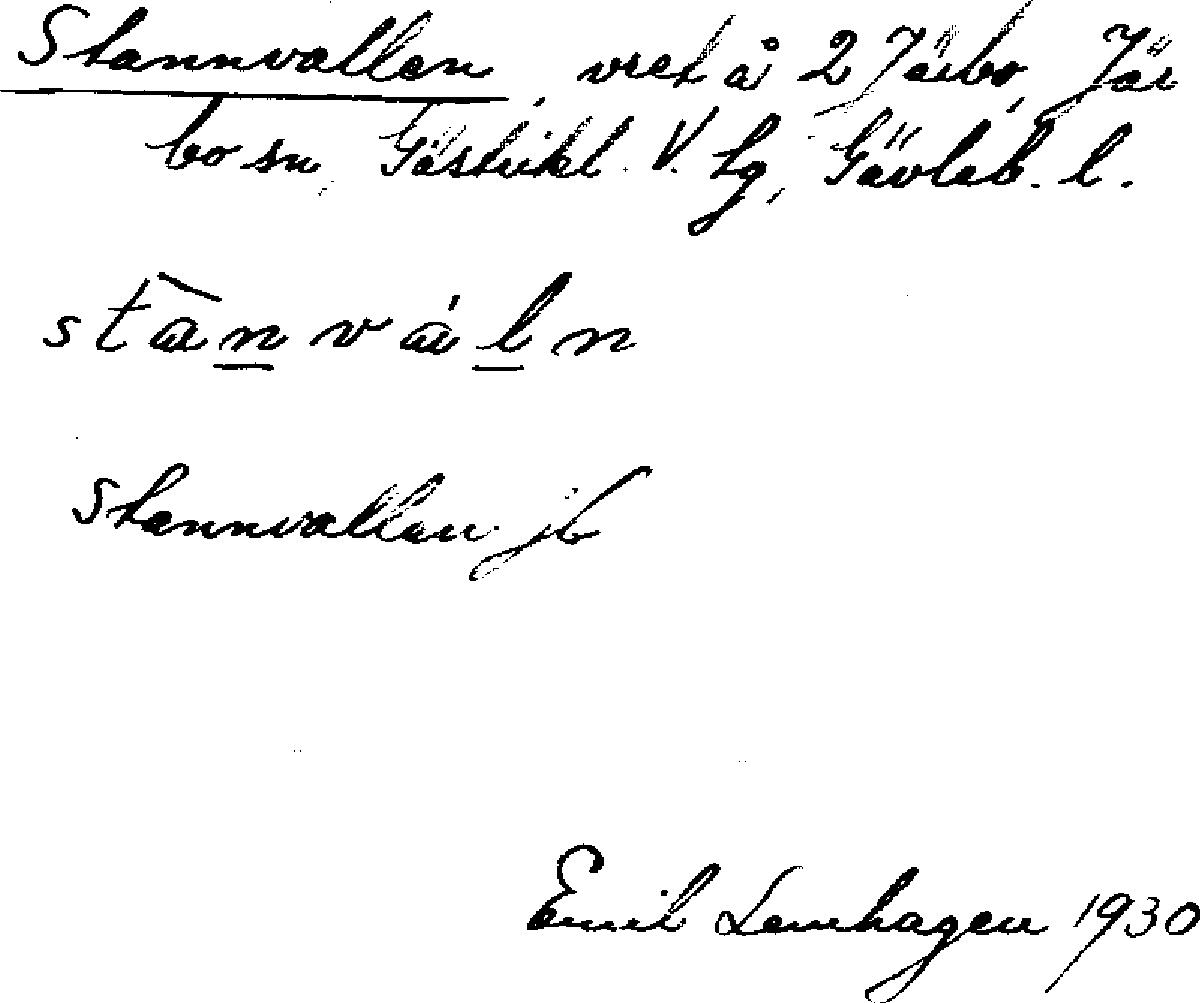 Stannvallen, vret å 2 Järbo, Jär
bo sn, Gästrikl. V. tg, Gävleb. l.
stànvál̲n
Stannvallen jb
Emil Lemhagen 1930